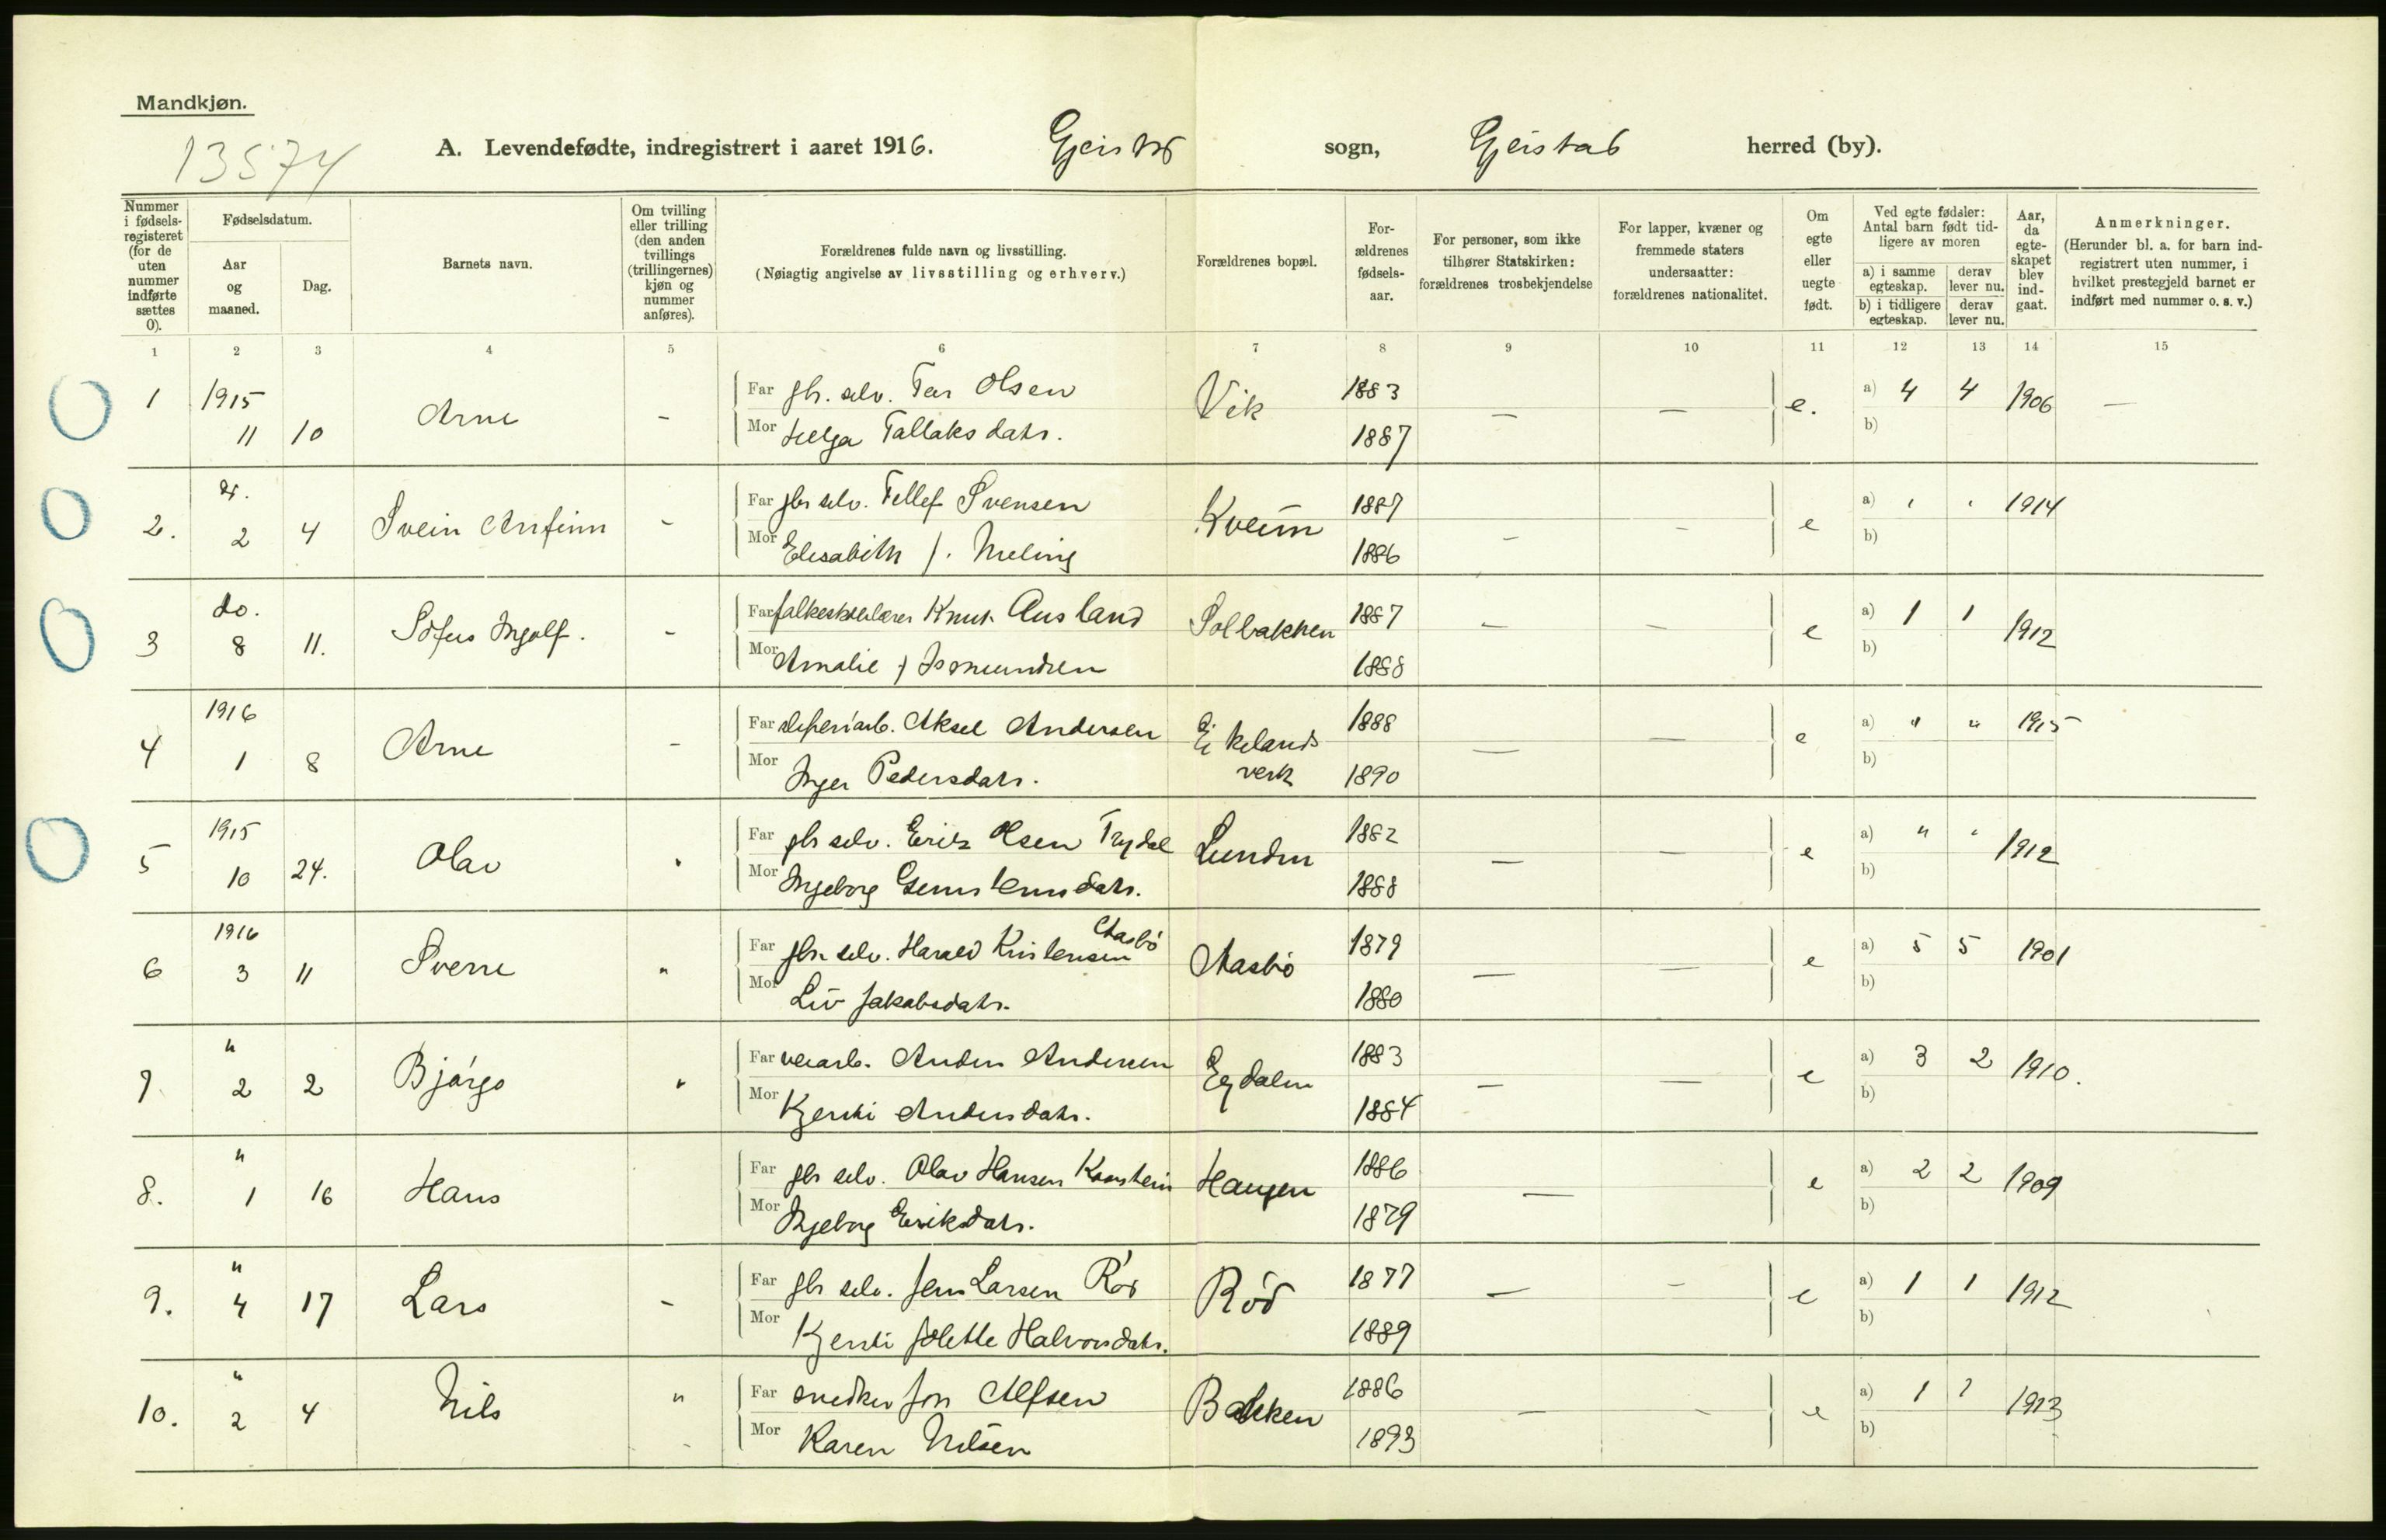 Mandkjøn.
13574
A. Levendefødte, indregistrert i aaret 1916. Gjerstad sogn, Gjerstad herred (by).
Nummer i fødsels-registeret (for de uten nummer indførte sættes 0).
Fødselsdatum.
Aar og maaned.
Dag.
Barnets navn.
Om tvilling eller trilling (den anden tvillings (trillingernes) kjøn og nummer anføres).
Forældrenes fulde navn og livsstilling.
(Nøiagtig angivelse av livsstilling og erhverv.)
Forældrenes bopæl.
For-ældrenes fødsels-aar.
For personer, som ikke tilhører Statskirken: forældrenes trosbekjendelse
For lapper, kvæner og fremmede staters undersaatter: forældrenes nationalitet.
Om egte eller uegte født.
Ved egte fødsler: Antal barn født tid-ligere av moren
a) i samme egteskap.
derav lever nu.
b) i tidligere egteskap.
derav lever nu.
Aar, da egte-skapet blev ind-gaat.
Anmerkninger.
(Herunder bl. a. for barn ind-registrert uten nummer, i hvilket prestegjeld barnet er indført med nummer o. s. v.)
1 2 3 4 5 6 7 8 9 10 11 12 13 14 15
1 1915 11 10 Arne - Far gbr. selv. Tar Olsen Vik 1883 — — e. a) 4 4 1906 —
Mor Helga Tallaksdatr. 1887 b)
2. 2 4 Svein Arnfinn - Far gbr selv. Tellef Svensen Kveim 1887 - - e a) " " 1914
Mor Elisabeth f. Meling 1886 b)
3 do. 8 11. Sofus Ingolf. - Far folkeskolelærer Knut Ausland Solbakken 1887 - - e a) 1 1 1912
Mor Amalie f 1888 b)
4 1916 1 8 Arne - Far sliperiarb. Aksel Andersen Eikelands verk 1888 — — e a) " " 1915
Mor Inger Pedersdatr. 1890 b)
5 1915 10 24. Olav " Far gbr selv. Erik Olsen Trydal Lunden 1882 — — e a) " " 1912
Mor Ingeborg 1888 b)
6 1916 3 11 Sverre " Far gbr. selv. Harald Kristensen Aasbö Aasbö 1879 — — e a) 5 5 1901
Mor Liv Jakobsdatr. 1880 b)
7 " 2 2 Bjørgo " Far veiarb. Anders Andersen Egdalen 1883 — — e a) 3 2 1910.
Mor Kjersti Andersdatr. 1884 b)
8. " 1 16 Hans Far gbr selv. Olav Hansen Haugen 1886 — — e a) 2 2 1909
Mor Ingeborg Eriksdatr. 1879 b)
9. " 4 17 Lars - Far gbr selv. Jens Larsen Röd Röd 1877 — - e a) 1 1 1912
Mor Kjersti Halvorsdatr. 1889 b)
10. " 2 4 Nils " Far snedker Jon Alfsen Bakken 1886 — - e a) 1 1 1913
Mor Karen Nilsen 1893 b)